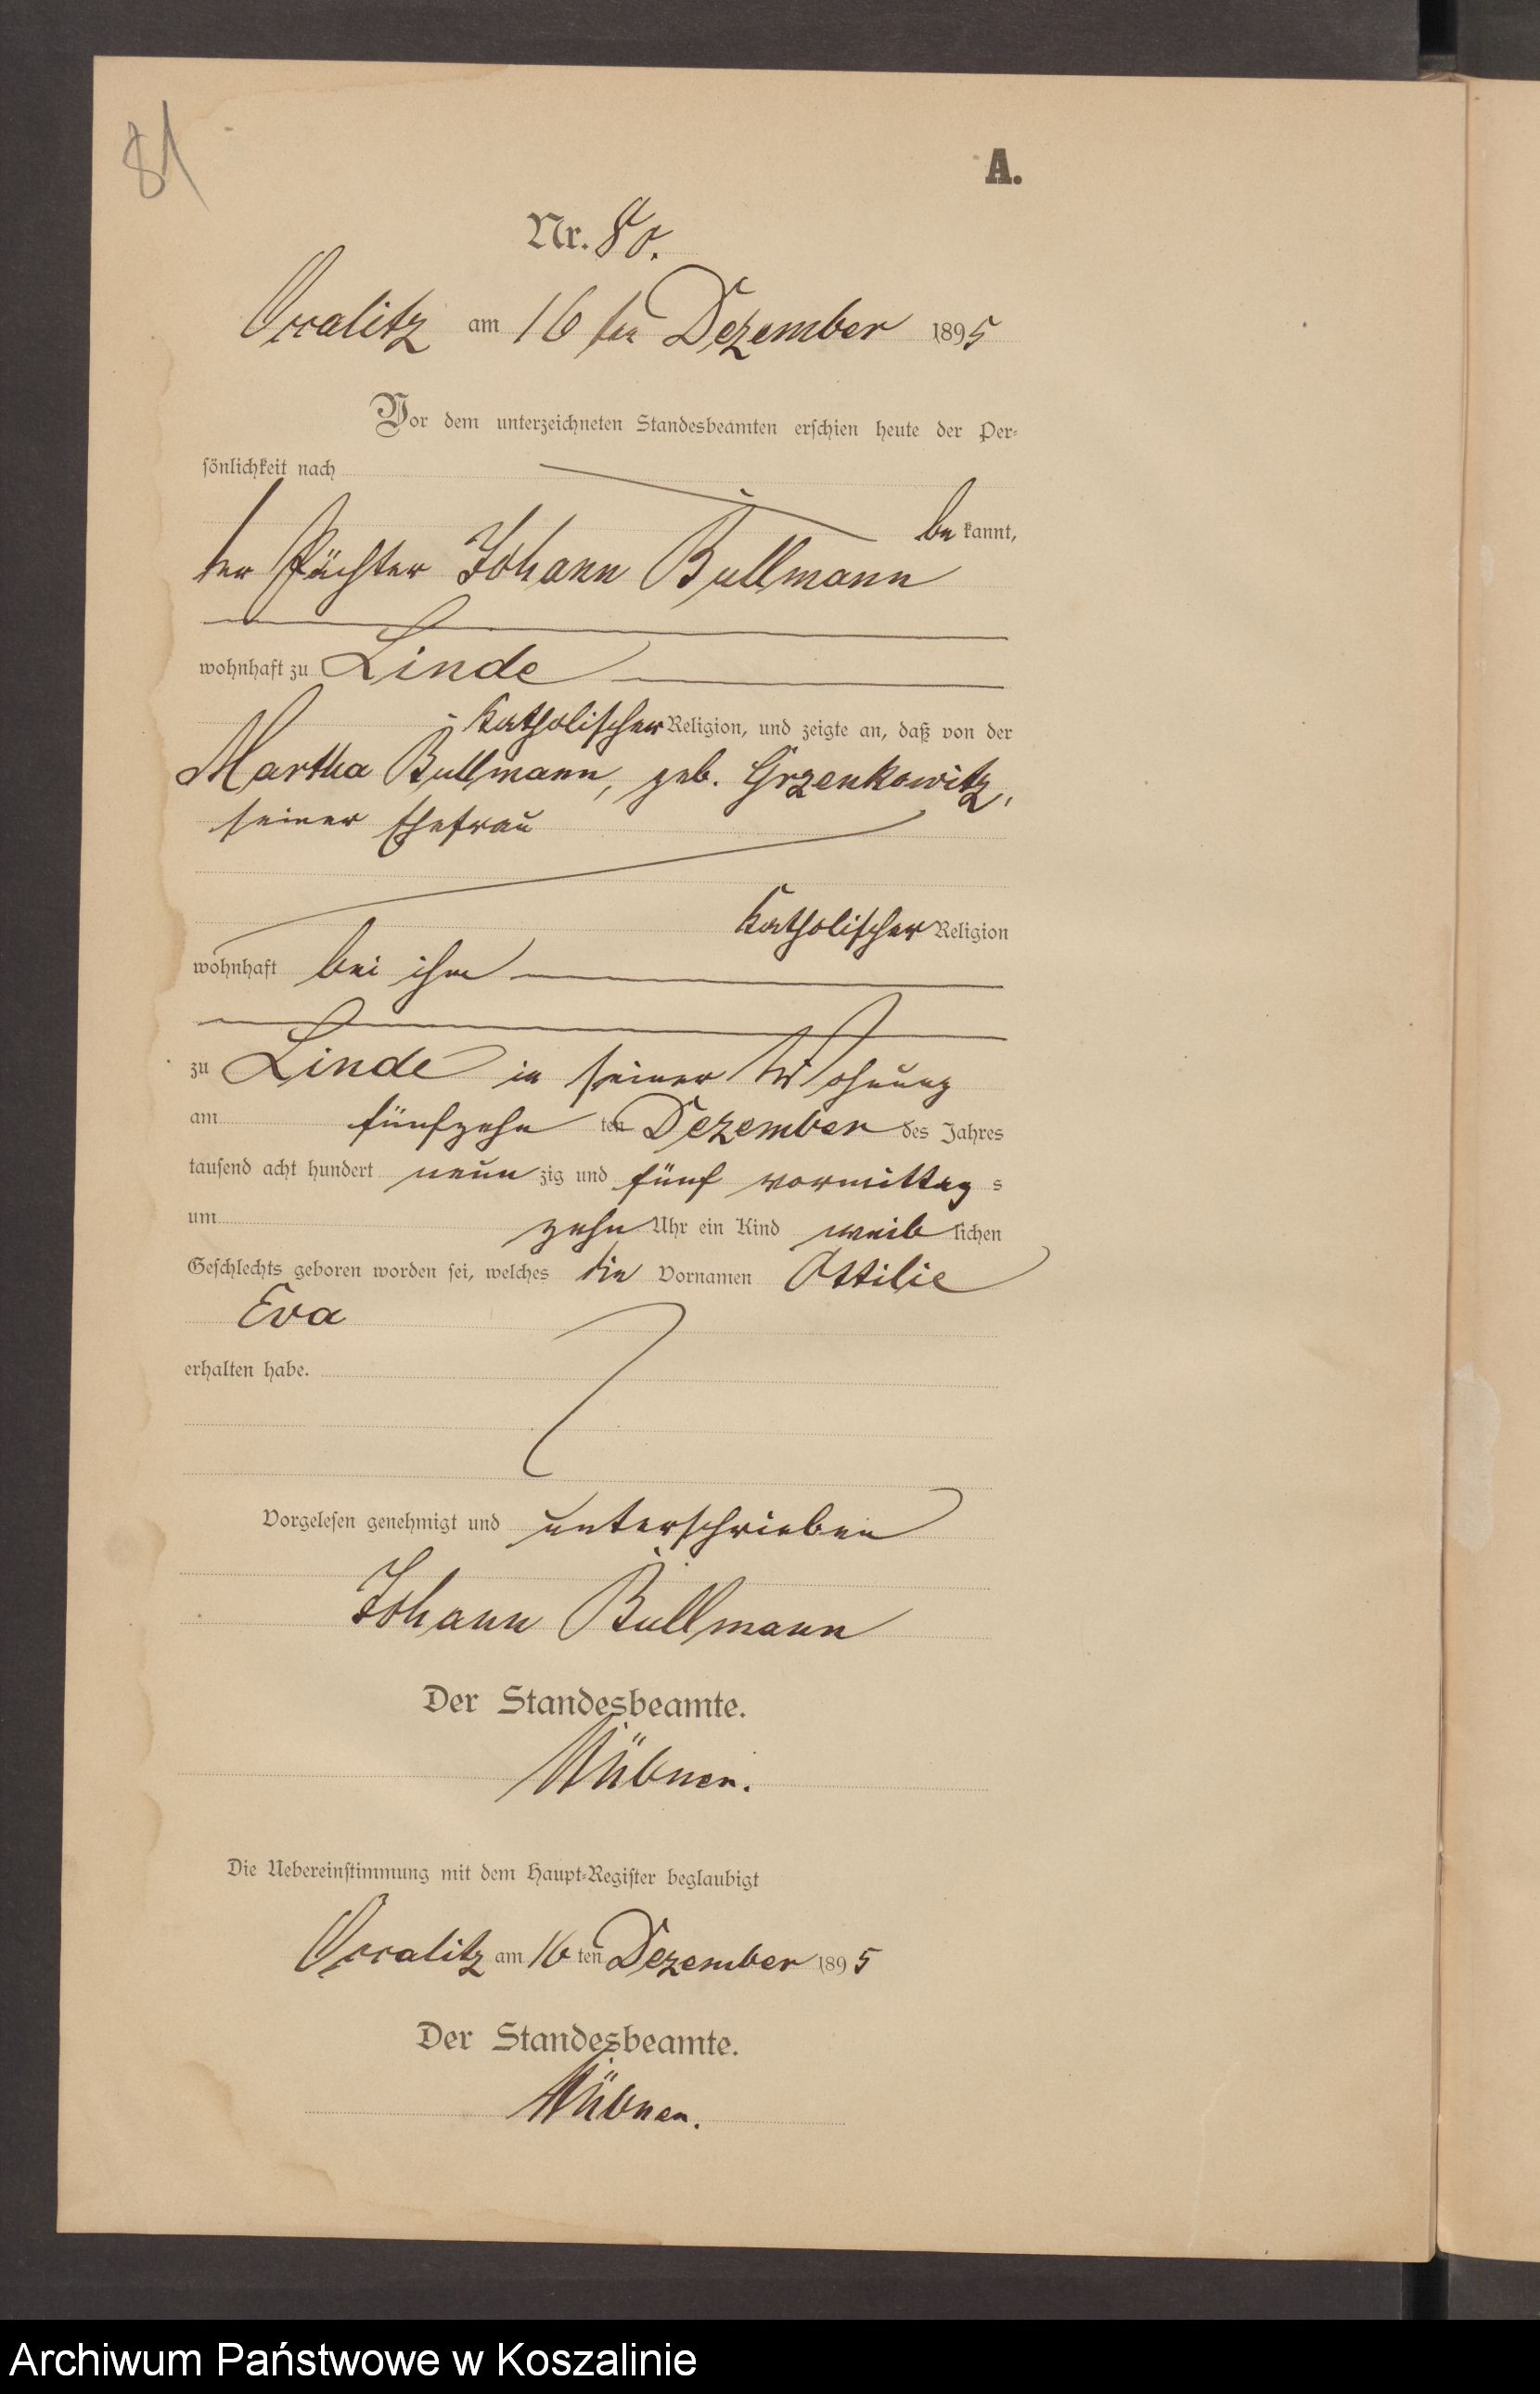 81
A.
Nr. 80.
am 16 ten Dezember 1895
Vor dem unterzeichneten Standesbeamten erschien heute der Per-
sönlichkeit nach
be kannt,
der Pächter Johann Bullmann
wohnhaft zu Linde
katholischer Religion, und zeigte an, daß von der
Martha Bullmann, geb. Grzenkowitz,
seiner Ehefrau
katholischer Religion
wohnhaft bei ihm
zu Linde in seiner Wohnung
am fünfzehn ten Dezember des Jahres
tausend acht hundert neun zig und fünf vormittag s
um zehn Uhr ein Kind weib lichen
Geschlechts geboren worden sei, welches die Vornamen Ottilie
Eva
erhalten habe.
Vorgelesen genehmigt und unterschrieben
Johann Bullmann
Der Standesbeamte.
Die Uebereinstimmung mit dem Haupt-Register beglaubigt
am 16 ten Dezember 1895
Der Standesbeamte.
Archiwum Państwowe w Koszalinie